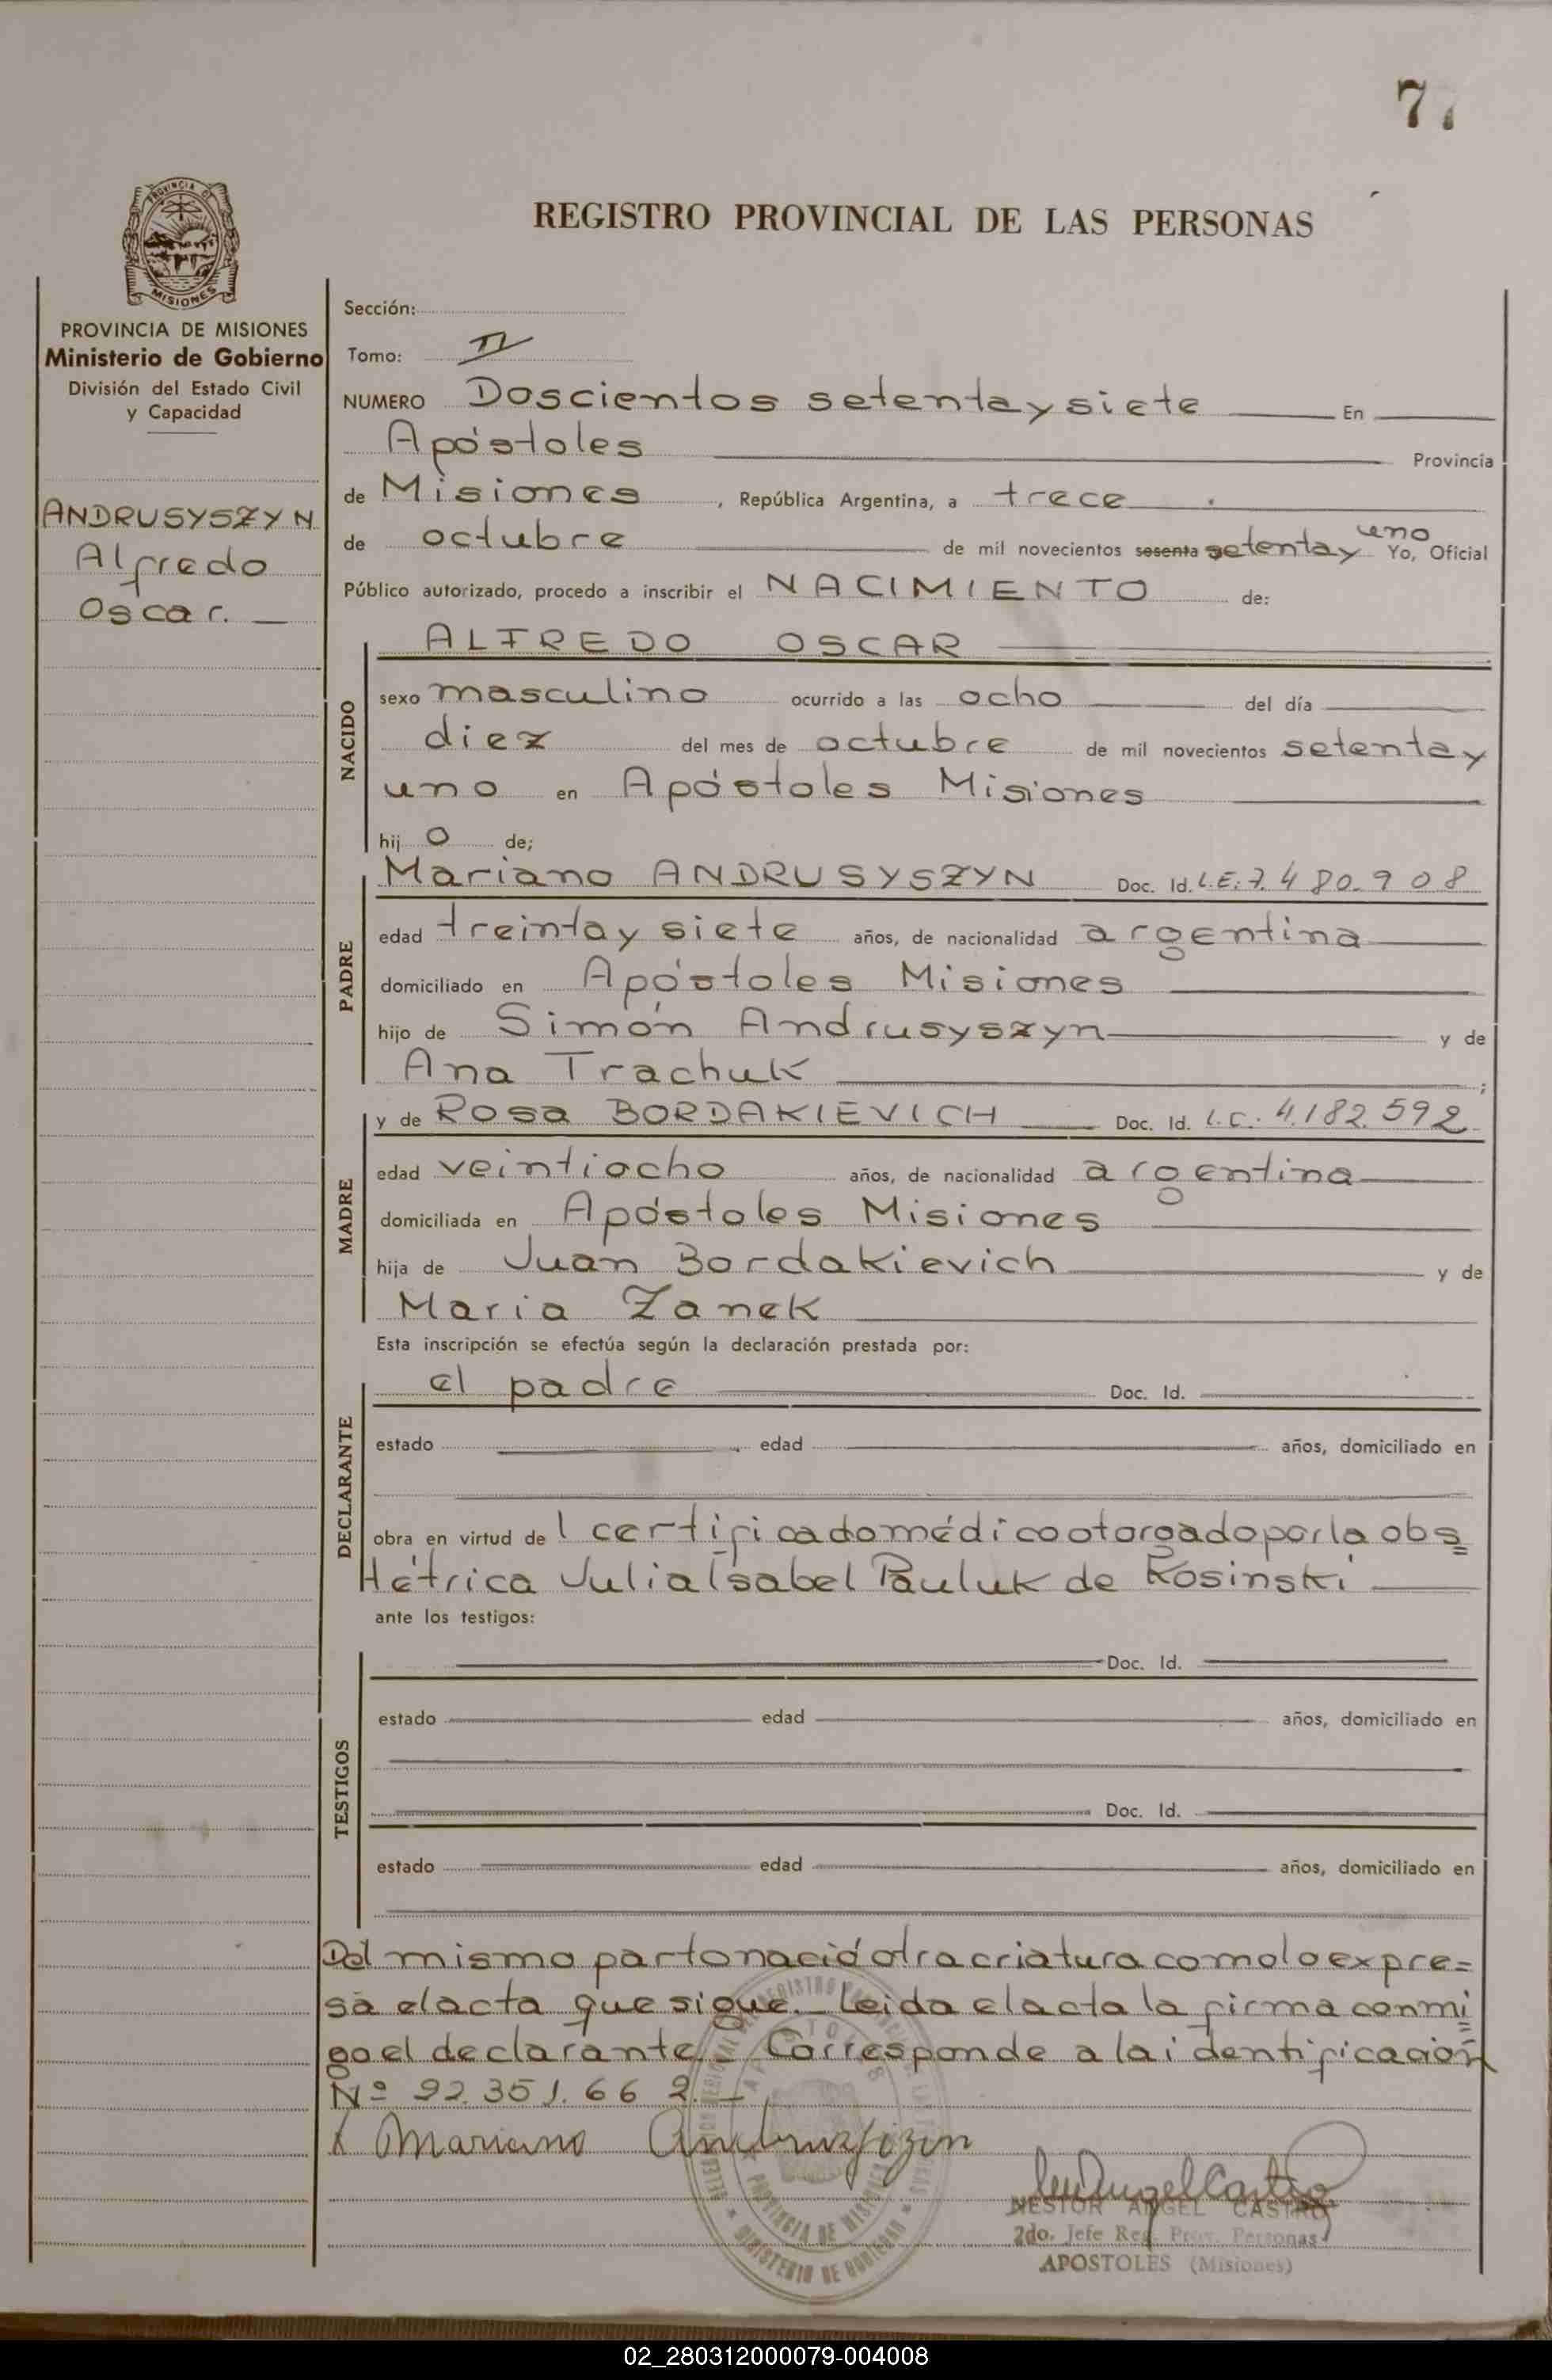 77
REGISTRO PROVINCIAL DE LAS PERSONAS
PROVINCIA DE MISIONES
Ministerio de Gobierno
División del Estado Civil
y Capacidad
ANDRUSYSZYN
Alfredo
Oscar.
Sección:
Tomo: II
NUMERO Doscientos setenta y siete En
Apóstoles Provincia
de Misiones, República Argentina, a trece
de octubre de mil novecientos sesenta setenta y uno Yo, Oficial
Público autorizado, procedo a inscribir el NACIMIENTO de:
NACIDO
ALFREDO OSCAR
sexo masculino ocurrido a las ocho del día
diez del mes de octubre de mil novecientos setenta y
uno en Apóstoles Misiones
hij o de;
PADRE
Mariano ANDRUSYSZYN Doc. Id. L.E. 7.480.908
edad treinta y siete años, de nacionalidad argentina
domiciliado en Apóstoles Misiones
hijo de Simón Andrusyszyn y de
Ana Trachuk ;
MADRE
y de Rosa BORDAKIEVICH Doc. Id. L.C. 4.182.592
edad veintiocho años, de nacionalidad argentina
domiciliada en Apóstoles Misiones
hija de Juan Bordakievich y de
Maria Zanek
Esta inscripción se efectúa según la declaración prestada por:
DECLARANTE
el padre Doc. Id.
estado edad años, domiciliado en
obra en virtud de l certificado médico otorgado por la obs=
tétrica Julia Isabel Pauluk de Kosinski
ante los testigos:
TESTIGOS
Doc. Id.
estado edad años, domiciliado en
Doc. Id.
estado edad años, domiciliado en
Del mismo parto nació otra criatura como lo expre=
sa el acta que sigue.- Leida el acta la firma conmi=
go el declarante.- Corresponde a la identificación
Nº 92.351.662.-
x Mariano Andrusyszyn
NESTOR ANGEL CASTRO
2do. Jefe Reg. Prov. Personas
APOSTOLES (Misiones)
PROVINCIA DE MISIONES
MINISTERIO DE GOBIERNO
02_280312000079-004008